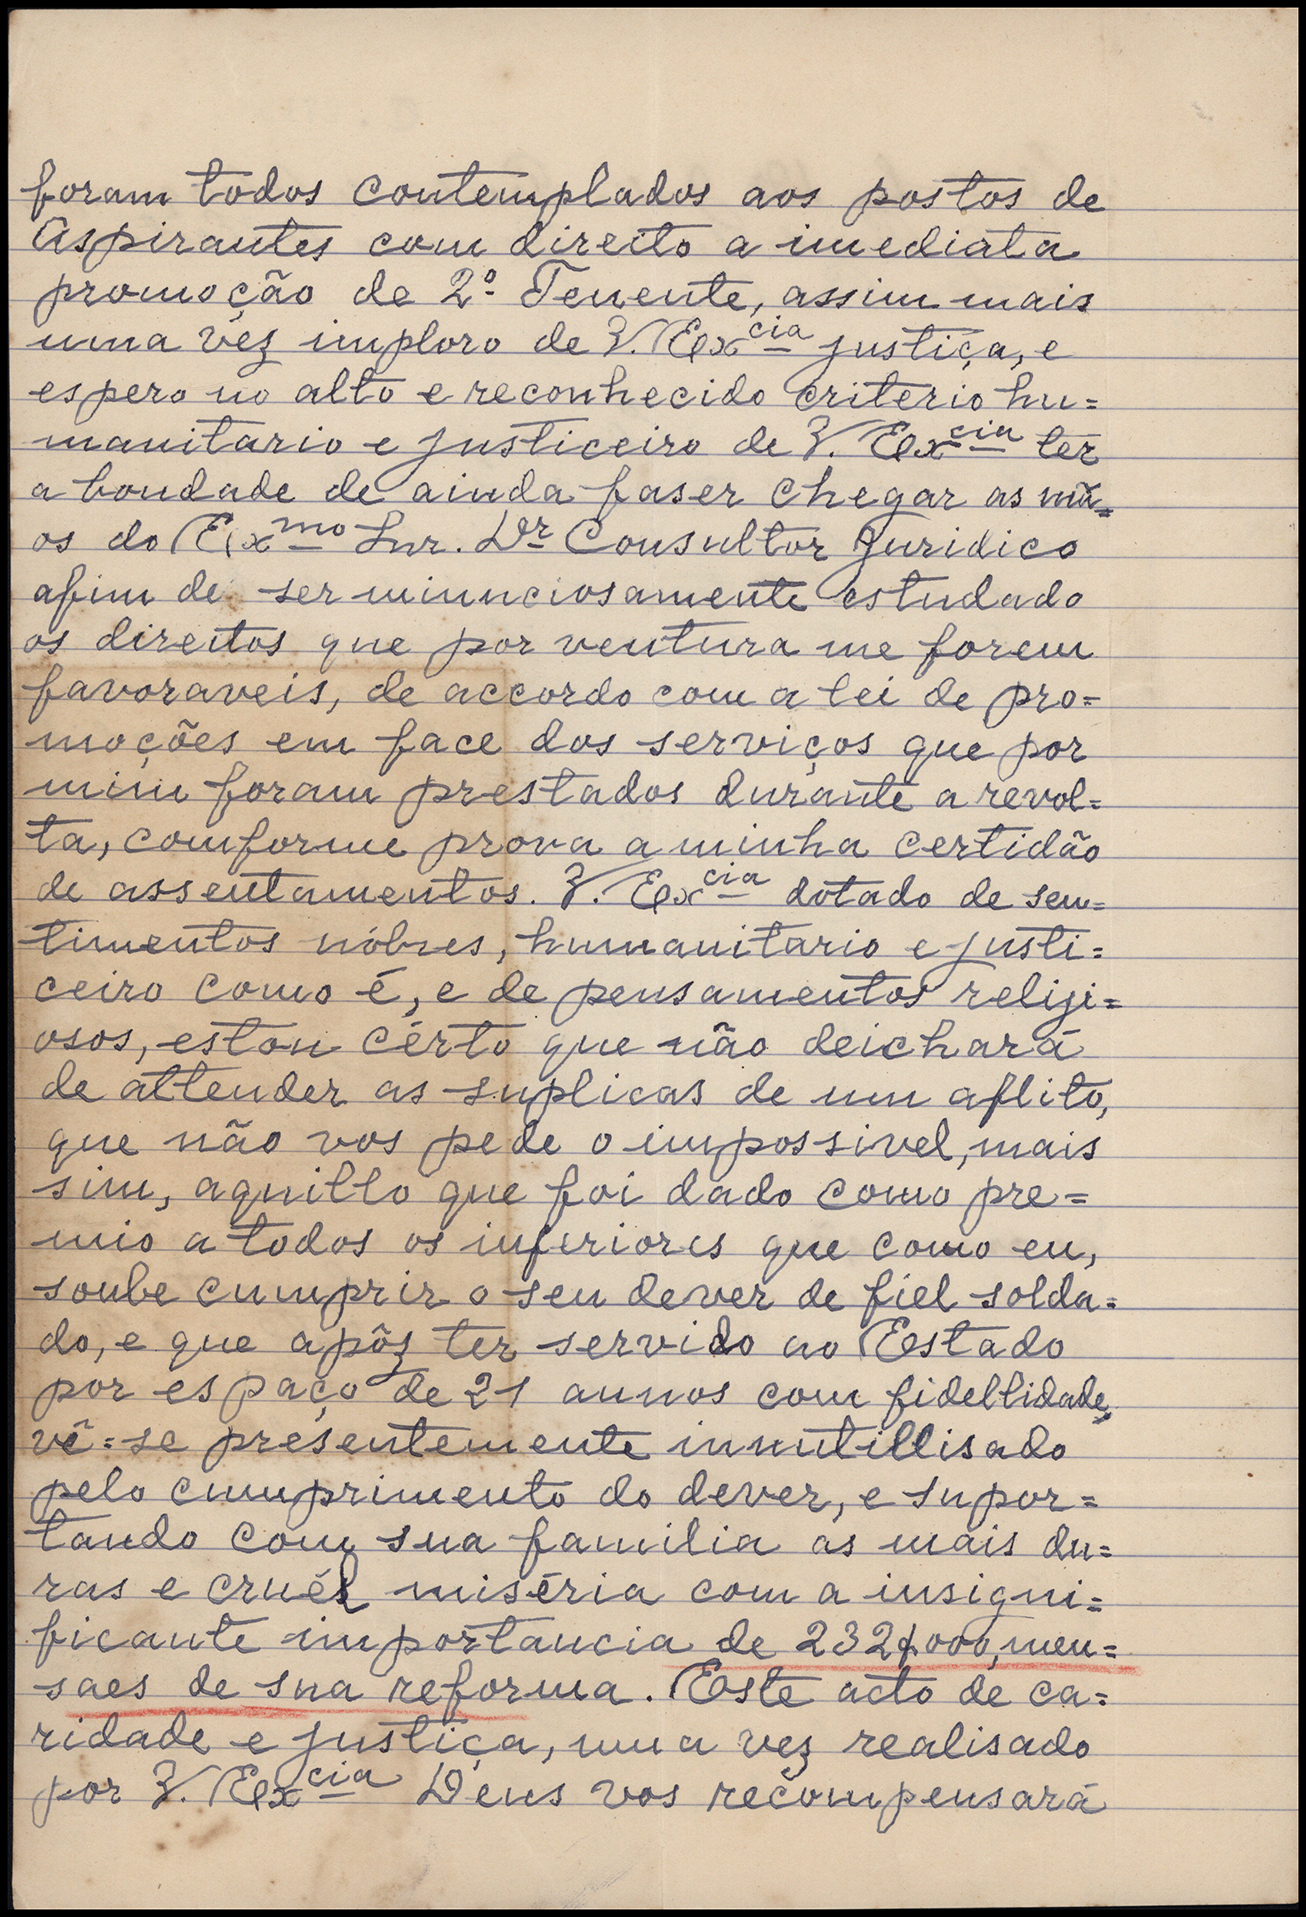 foram todos contemplados aos postos de
Aspirantes com direito a imediata
promoção de 2º Tenente, assim mais
uma vez imploro de V. Excia justiça, e
espero no alto e reconhecido criterio hu=
manitario e justiceiro de V. Excia ter
a bondade de ainda faser chegar as mã=
os do Exmo Snr. Dr Consultor Juridico
afim de ser minunciosamente estudado
os direitos que por ventura me forem
favoraveis, de accordo com a lei de pro=
moções em face dos serviços que por
mim foram prestados durante a revol=
ta, comforme prova a minha certidão
de assentamentos. V. Excia dotado de sen=
timentos nóbres, humanitario e justi=
ceiro como é, e de pensamentos religi=
osos, estou cérto que não deichará
de attender as suplicas de um aflito,
que não vos pede o impossivel, mais
sim, aquillo que foi dado como pre=
mio a todos os inferiores que como eu,
soube cumprir o seu dever de fiel solda=
do, e que apôz ter servido ao Estado
por espaço de 21 annos com fidellidade,
vê=se presentemente innutillisado
pelo cumprimento do dever, e supor=
tando com sua familia as mais du=
ras e cruél miséria com a insigni=
ficante importancia de 232$000, men=
saes de sua reforma. Este acto de ca=
ridade e justiça, uma vez realisado
por V. Excia Deus vos recompensará